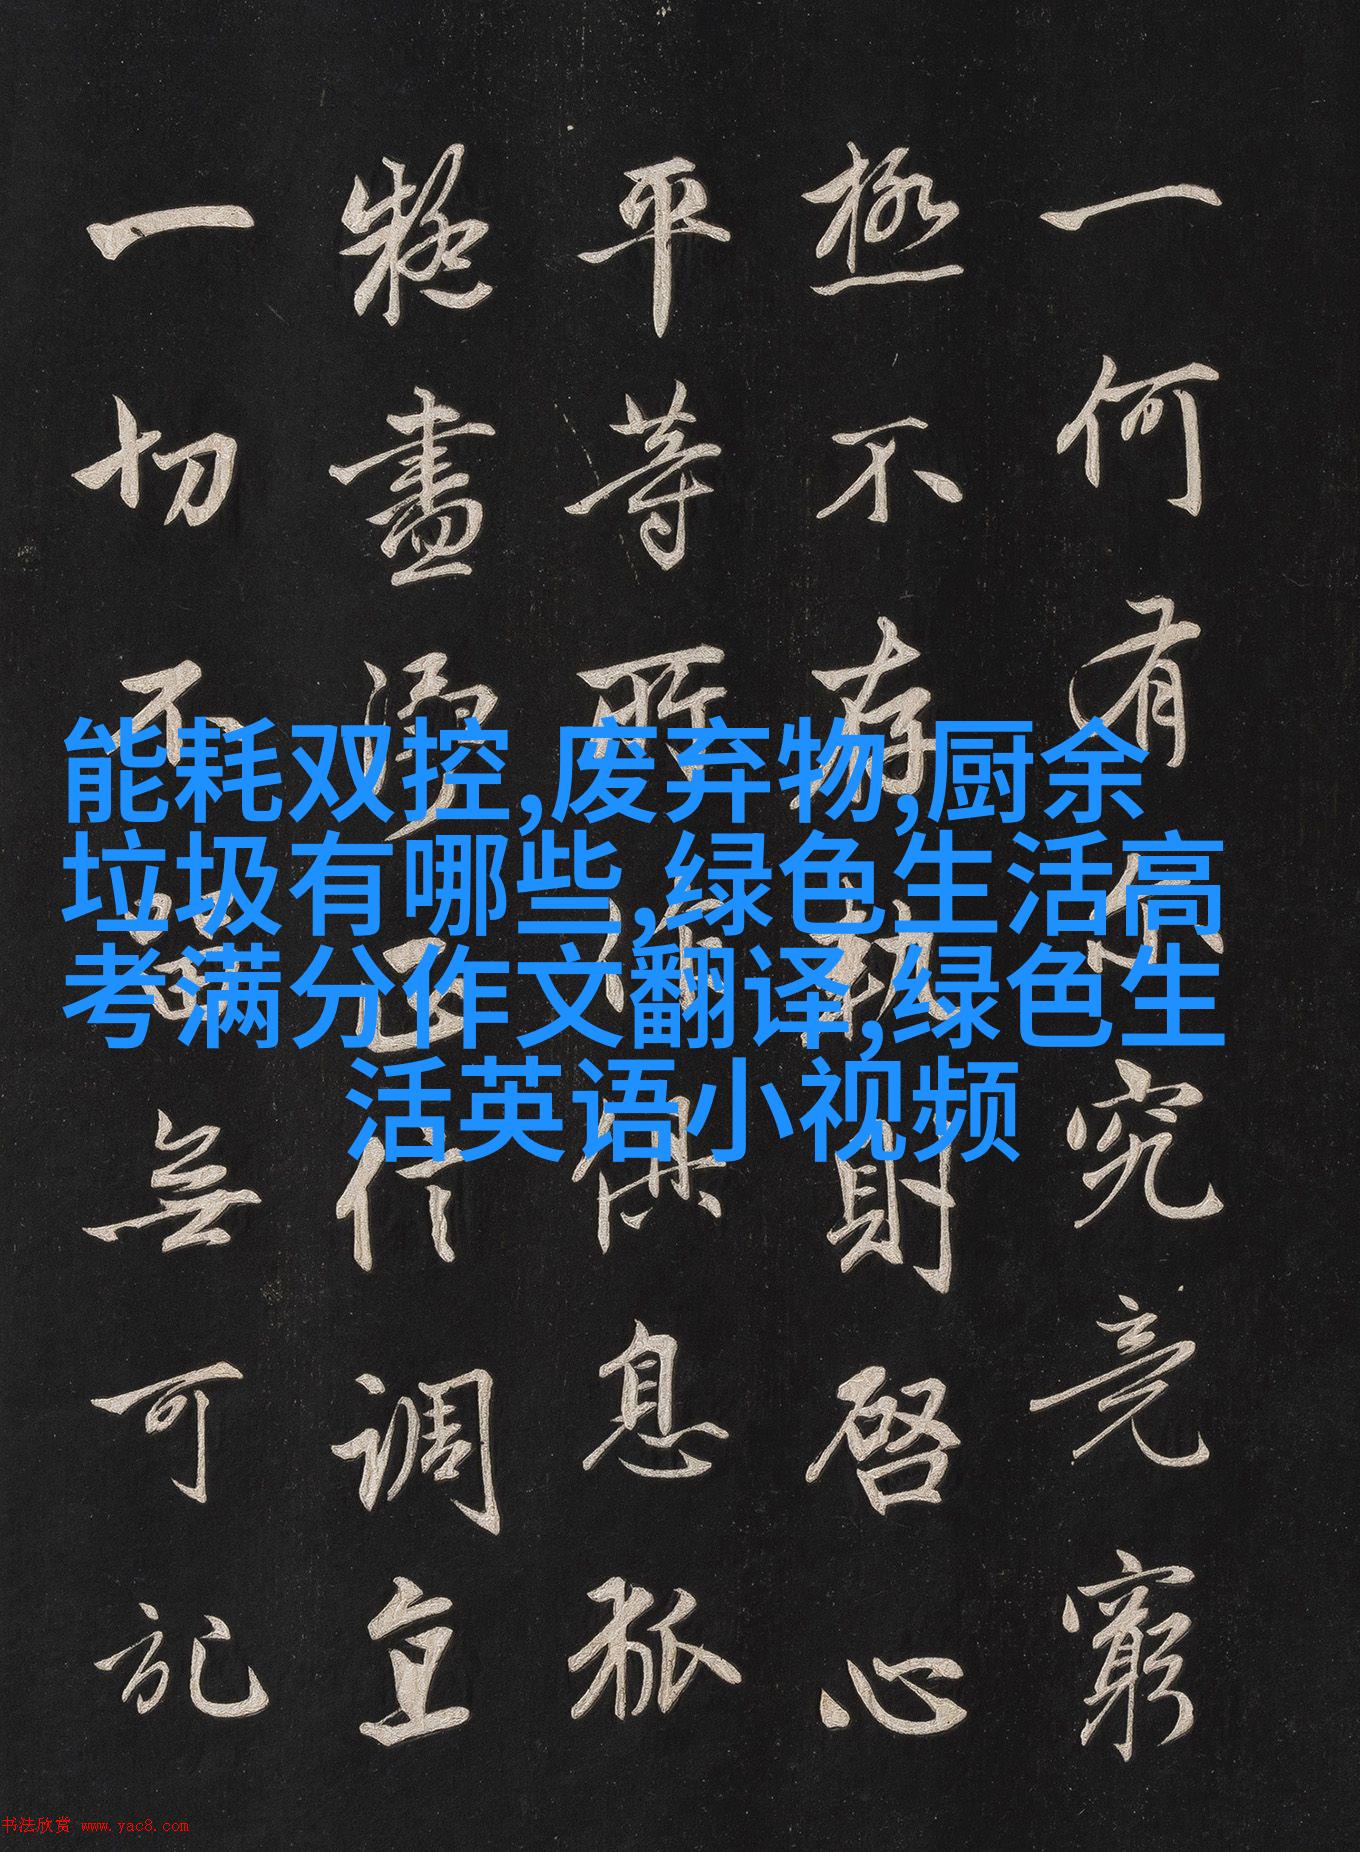 能耗双控,废弃物,厨余
垃圾有哪些,绿色生活高
考满分作文翻译,绿色生
活英语小视频
一何有尔究竟窮
極不存軌則啓心
平等所作俱息狐
疑盡淨正信調直
一切不留無可記
书法欣赏 www.yac8.com